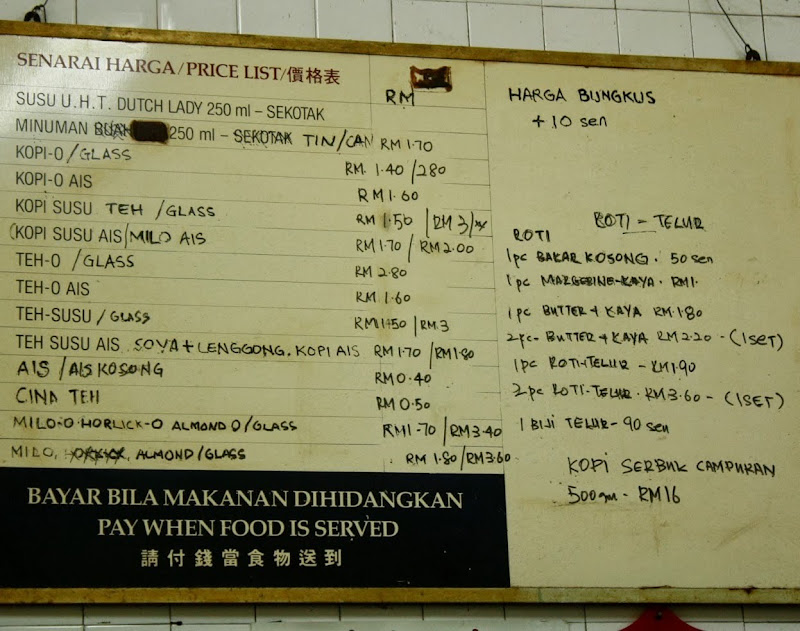 SENARAI HARGA/PRICE LIST/價格表 RM
SUSU U.H.T. DUTCH LADY 250 ml – SEKOTAK
MINUMAN BUAH 250 ml – SEKOTAK TIN/CAN RM 1.70
KOPI-O/GLASS RM. 1.40/280
KOPI-O AIS RM 1.60
KOPI SUSU TEH /GLASS RM 1.50 /RM 3/
(KOPI SUSU AIS/MILO AIS RM 1.70 / RM 2.00
TEH-O /GLASS RM 2.80
TEH-O AIS RM 1.60
TEH-SUSU/GLASS RM 1.50 /RM.3
TEH SUSU AIS SOYA+LENGGONG. KOPI AIS RM 1.70 /RM 1.80
AIS /AIS KOSONG RM 0.40
CINA TEH RM 0.50
MILO-O HORLICK-O ALMOND O/GLASS RM1-70 /RM3.40
MILO, ALMOND/GLASS RM 1.80/RM3.60
BAYAR BILA MAKANAN DIHIDANGKAN
PAY WHEN FOOD IS SERVED
請付錢當食物送到
HARGA BUNGKUS
+ 10 sen
ROTI – TELUR
ROTI
1pc BAKAR KOSONG. 50 sen
1pc MARGERINE-KAYA. RM1.
1pc BUTTER + KAYA RM 1.80
2pc- BUTTER + KAYA RM 2.20 - (1SET)
1pc ROTI-TELUR - RM1.90
2 pc ROTI-TELUR. RM3.60 - (1SET)
1 BIJI TELUR- 90 sen
KOPI SERBUK CAMPURAN
500gm - RM16